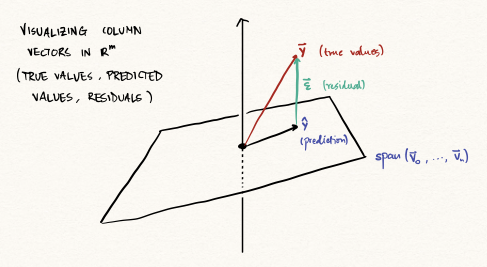 VISUALIZING COLUMN
VECTORS IN ℝᵐ
(TRUE VALUES, PREDICTED
VALUES, RESIDUALS)
y⃗ (true values)
ε⃗ (residual)
ŷ
(prediction)
span (v⃗₀, ..., v⃗ₙ)